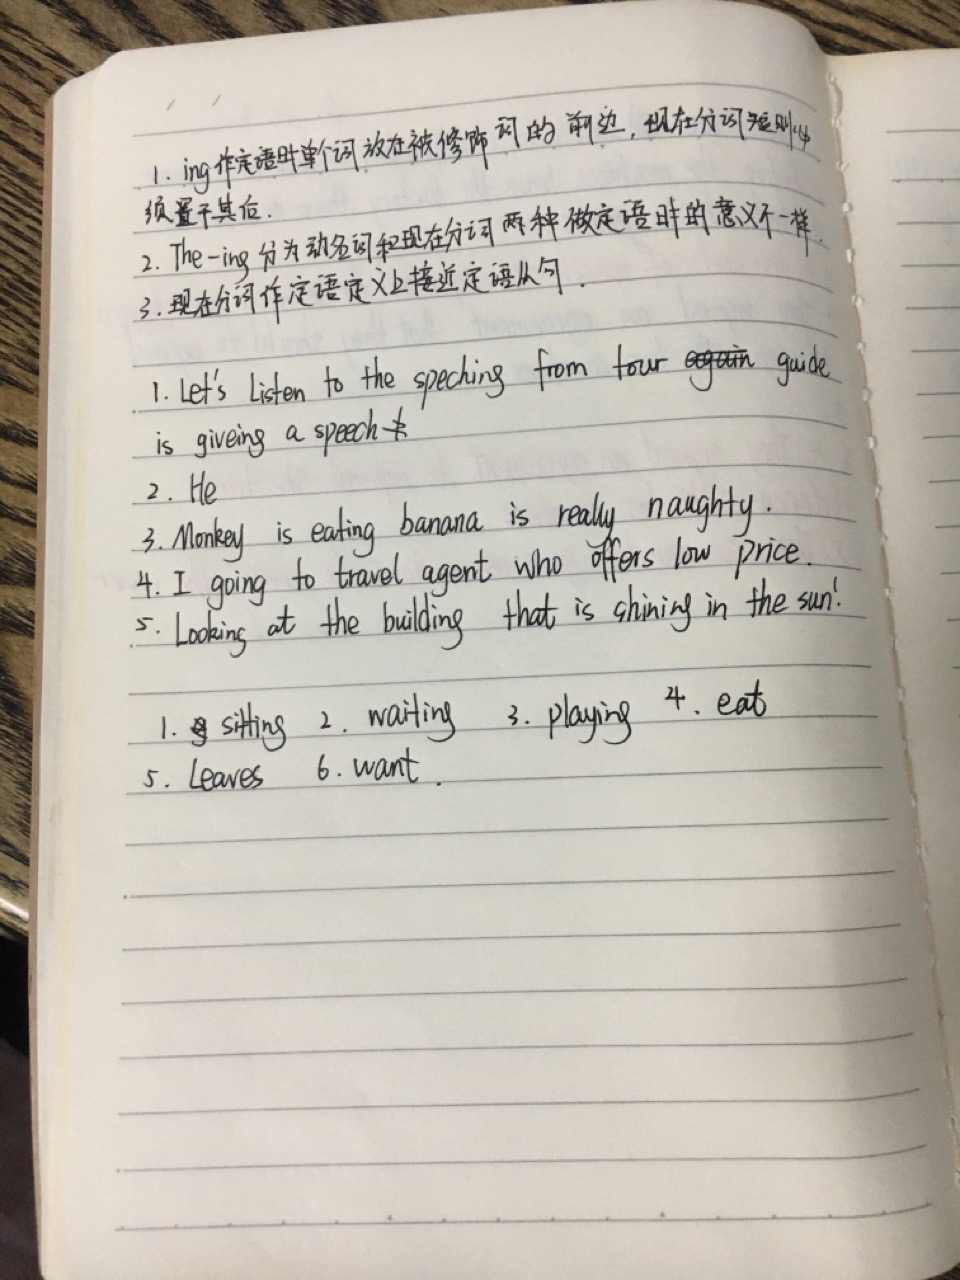 1. ing作定语时单个词放在被修饰词的前边，现在分词短则必
须置于其后.
2. The-ing 分为动名词和现在分词 两种 做定语时的意义不一样.
3. 现在分词作定语定义上接近定语从句.
1. Let's Listen to the speching from tour guide
is giveing a speech
2. He
3. Monkey is eating banana is really naughty.
4. I going to travel agent who offers low price.
5. Looking at the building that is shining in the sun!
1. sitting 2. waiting 3. playing 4. eat
5. Leaves 6. want.